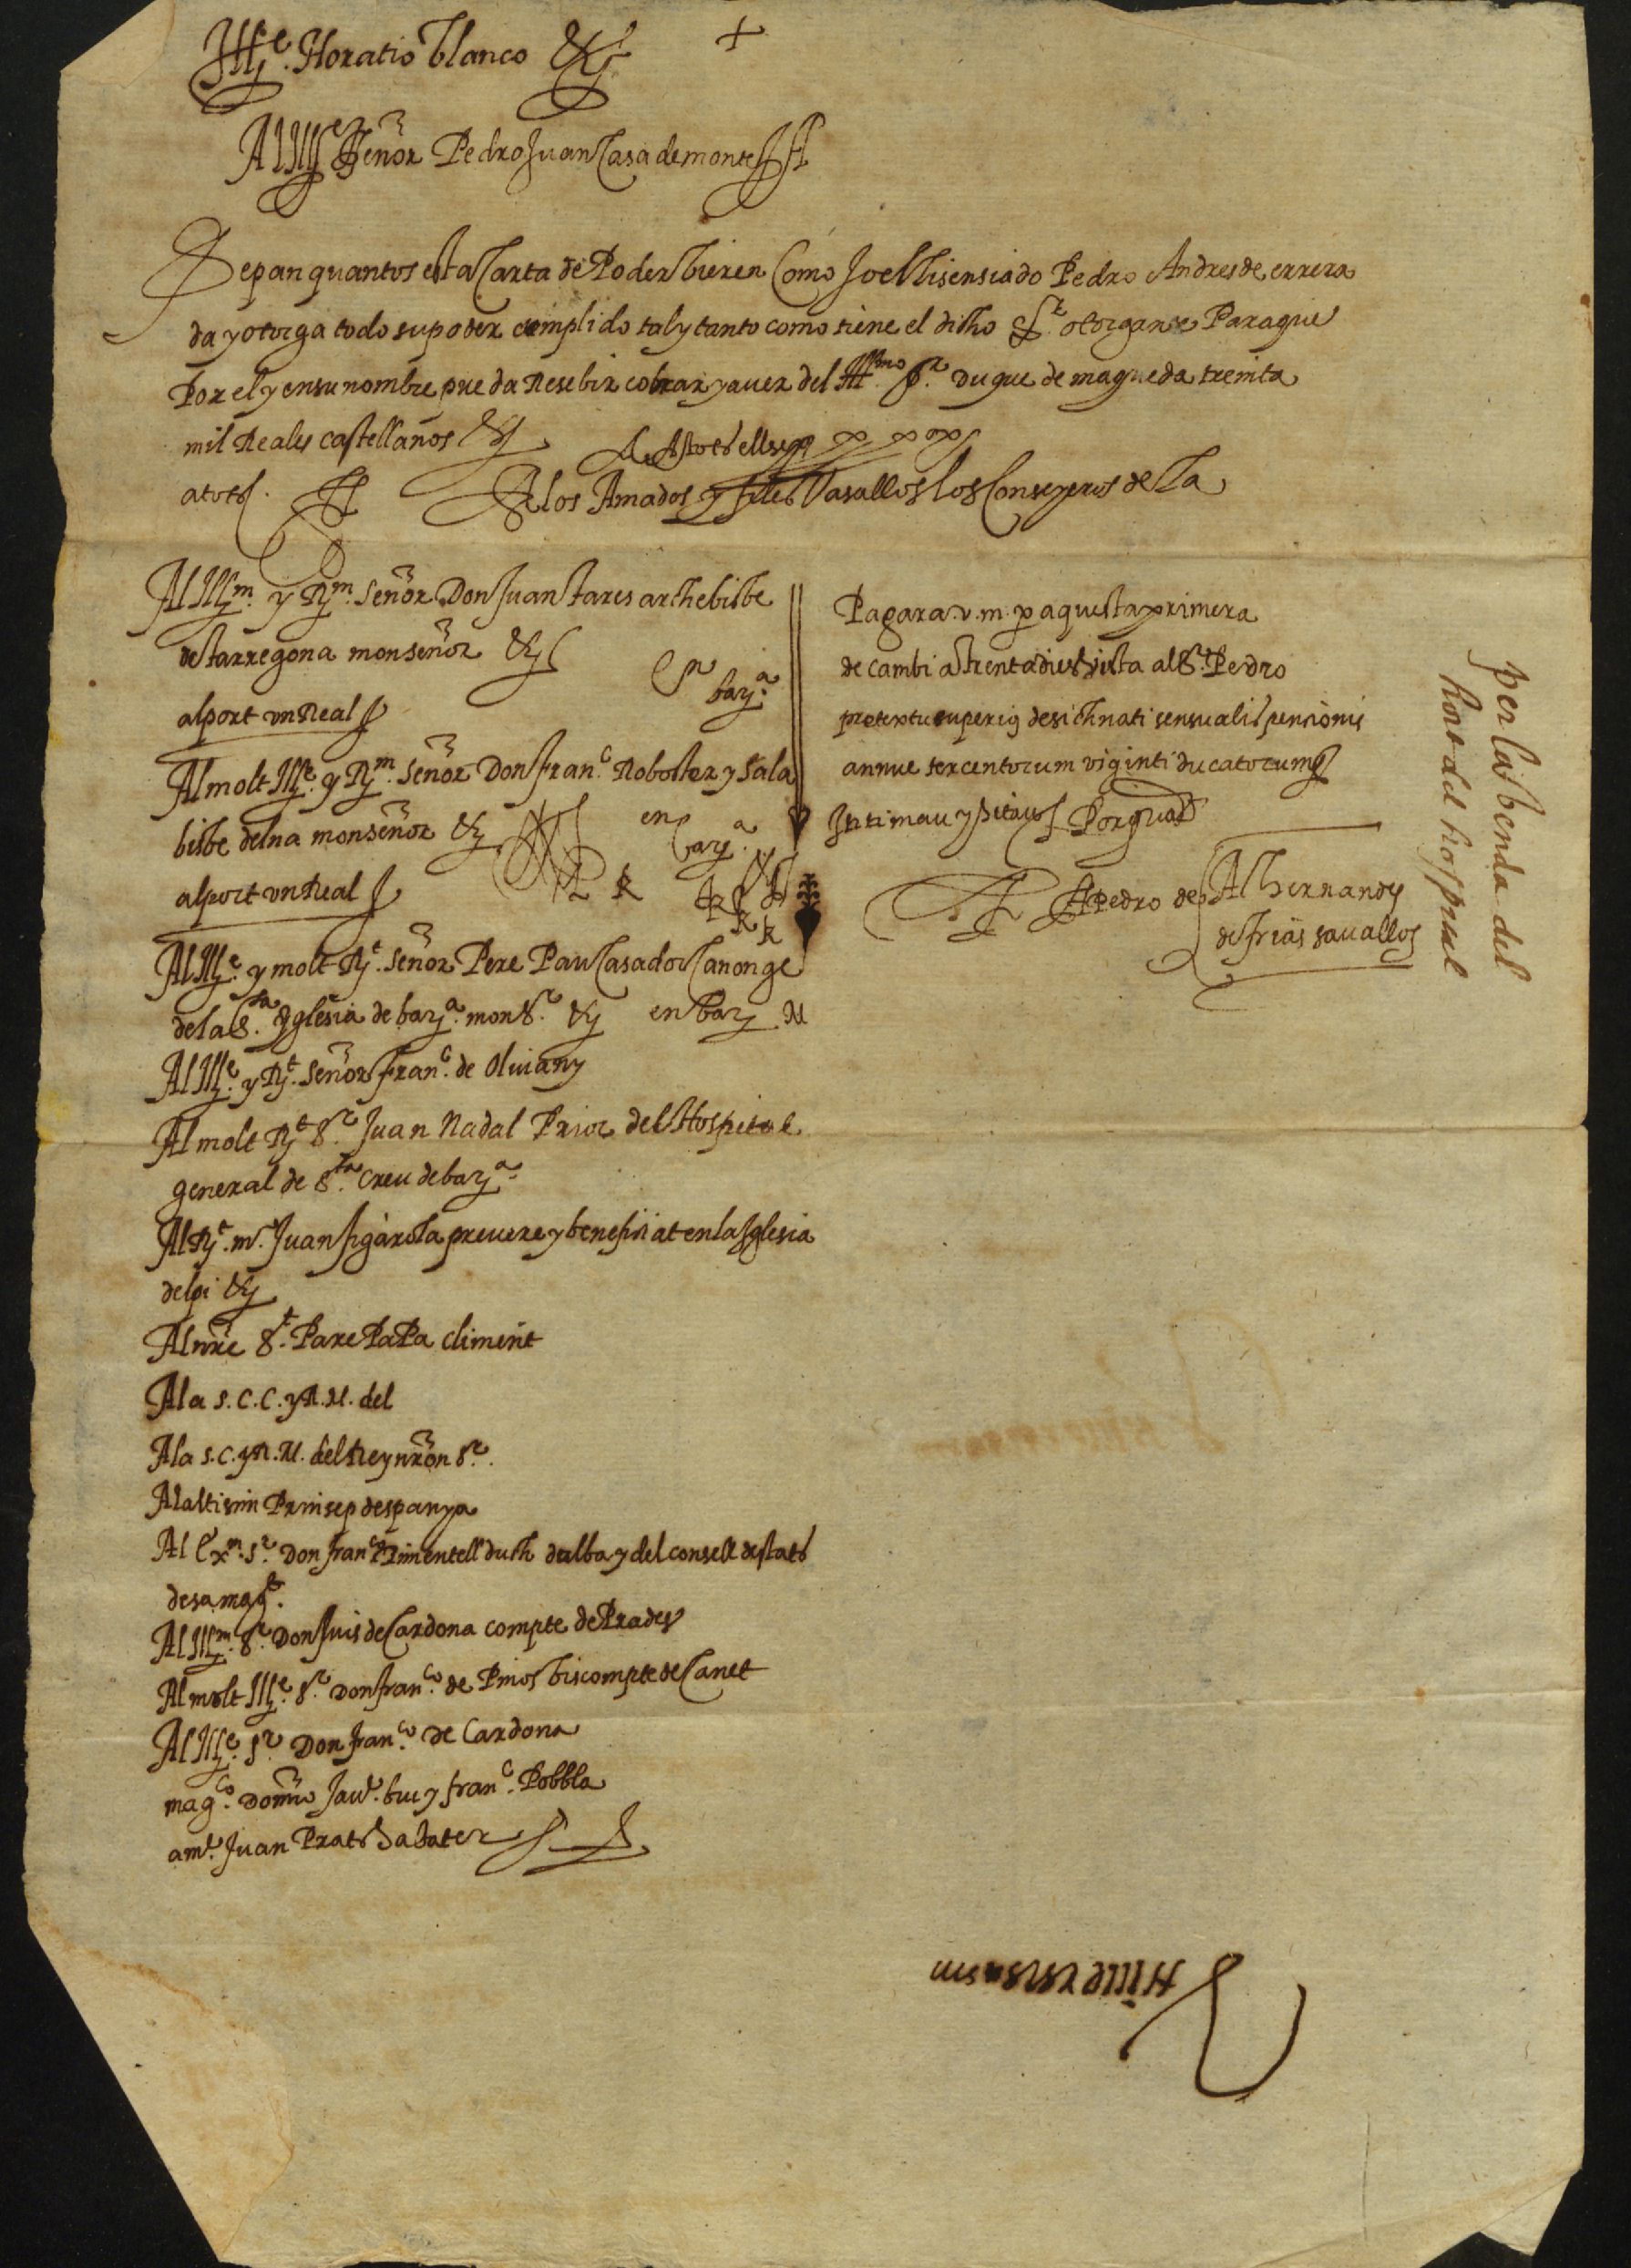 Ille. Horatio Blanco &c
+
Al Ille Señor Pedro Juan Casademont
Sepan quantos esta Carta de Poder bieren Como Jo el lisensiado Pedro Andres de errera
da y otorga todo su poder cumplido tal y tanto como tiene el dicho Sr. otorgante Paraque
Por el y en su nombre pueda Resebir cobrar y auer del Illmo Sr. Duque de maqueda treinta
mil Reales castellanos &c
atots.
A los Amados y fieles Vasallos los Conseyeros de la
Al Illm. y Rm. Señor Don Juan Tares archebisbe
de tarregona monseñor &c
en bara.
al port un Real
Al molt Ille. y Rm. Señor Don franc. Roboster y Sala
bisbe delna monseñor &c
en bara.
al port un Real
Al Ille. y molt Rt. Señor Pere Pau Casador Canonge
de la Sta. Yglesia de bara. monsr. &c en bar
Al Ille. y Rt. Señor franc. de Oluiany
Al molt Rt Sr. Juan Nadal Prior del Hospital
general de Sta. Creu de bara.
Al Rt. mr. Juan figarola preuere y benefisiat en la Iglesia
del pi &c
Al nre St. Pare PaPa climent
A la S.C.C. y R.M. del
A la S.C. y R.M. del Rey nron Sr.
Al altisim Prinsep despanya
Al Exm. Sr. Don franc Pimentell duch dalba y del consell destats
de sa magt.
Al Illm. Sr. Don Luis de Cardona compte de Prades
Al molt Ille. Sr. Don franco. de Pinos biscompte de Canet
Al Ille. Sr. Don franco. de Cardona
magco. Domin Jaue. bu y franc. Pobbla
amt. Juan Prats Sabater
Pagara v.m. per aquesta primera
de cambi a trenta dies vista al Sr. Pedro
pretextu superius desichnati sensualis pensionis
annue tercentorum viginti ducatorum
Intimau y sitaus Porquad
Pedro de Alhernandes
de frias sauallos
per la benda del
hort del hospital